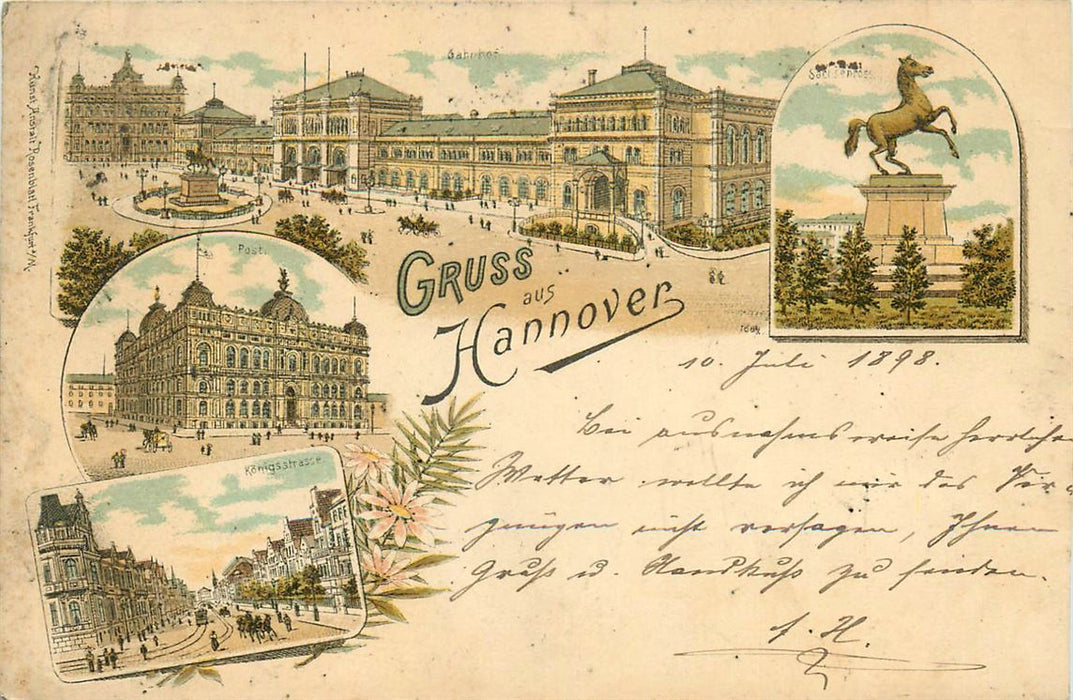 Bahnhof
Sachsenross
Kunst Anstalt Rosenblatt Frankfurt a/M.
Post.
GRUSS
aus
Hannover
Königsstrasse
10. Juli 1898.
Bei ausnahmsweise herrlichem
Wetter wollte ich mir das Ver-
gnügen nicht versagen, Ihnen
Gruß u. Handkuß zu senden.
A. H.